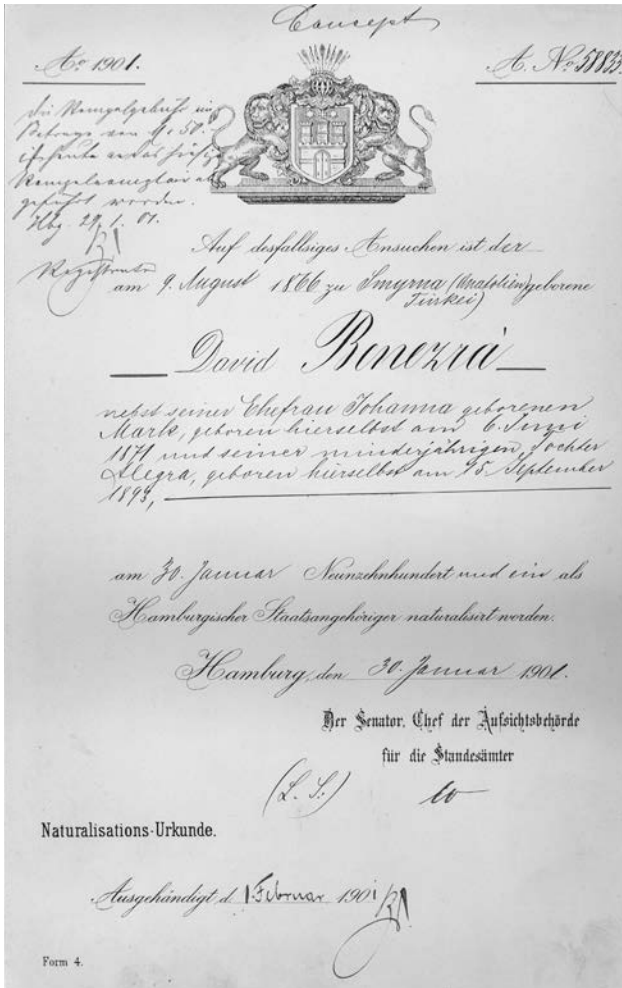 Concept
Ao 1901.
A. No 58833
die Stempelgebühr im
Betrage von M. 50.
ist heute an das hiesige
geführt worden.
Hbg. 29.1.01.
Registrator
Auf desfallsiges Ansuchen ist der
am 9. August 1866 zu Smyrna (Anatolien) geborene
Türkei)
David Benezrà
nebst seiner Ehefrau Johanna geborenen
Mark, geboren hierselbst am 6. Juni
1871 und seiner minderjährigen Tochter
Alegra, geboren hierselbst am 15. September
1893,
am 30. Januar Neunzehnhundert und ein als
Hamburgischer Staatsangehöriger naturalisirt worden.
Hamburg, den 30. Januar 1901.
Der Senator, Chef der Aufsichtsbehörde
für die Standesämter
(L. S.)
Naturalisations-Urkunde.
Ausgehändigt d. 1. Februar 1901
Form 4.